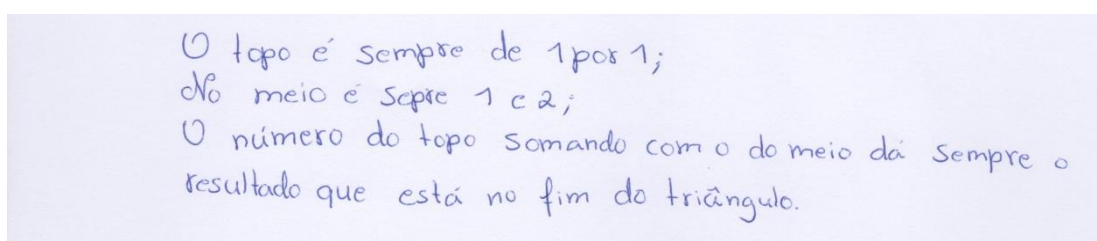 O topo é sempre de 1 por 1;
No meio é sepre 1 e 2;
O número do topo somando com o do meio dá sempre o
resultado que está no fim do triângulo.